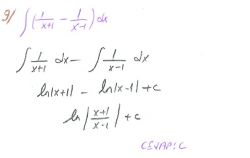 9) ∫(1/(x+1) - 1/(x-1))dx
∫ 1/(x+1) dx - ∫ 1/(x-1) dx
ln|x+1| - ln|x-1| + c
ln|(x+1)/(x-1)| + c
CEVAP: C